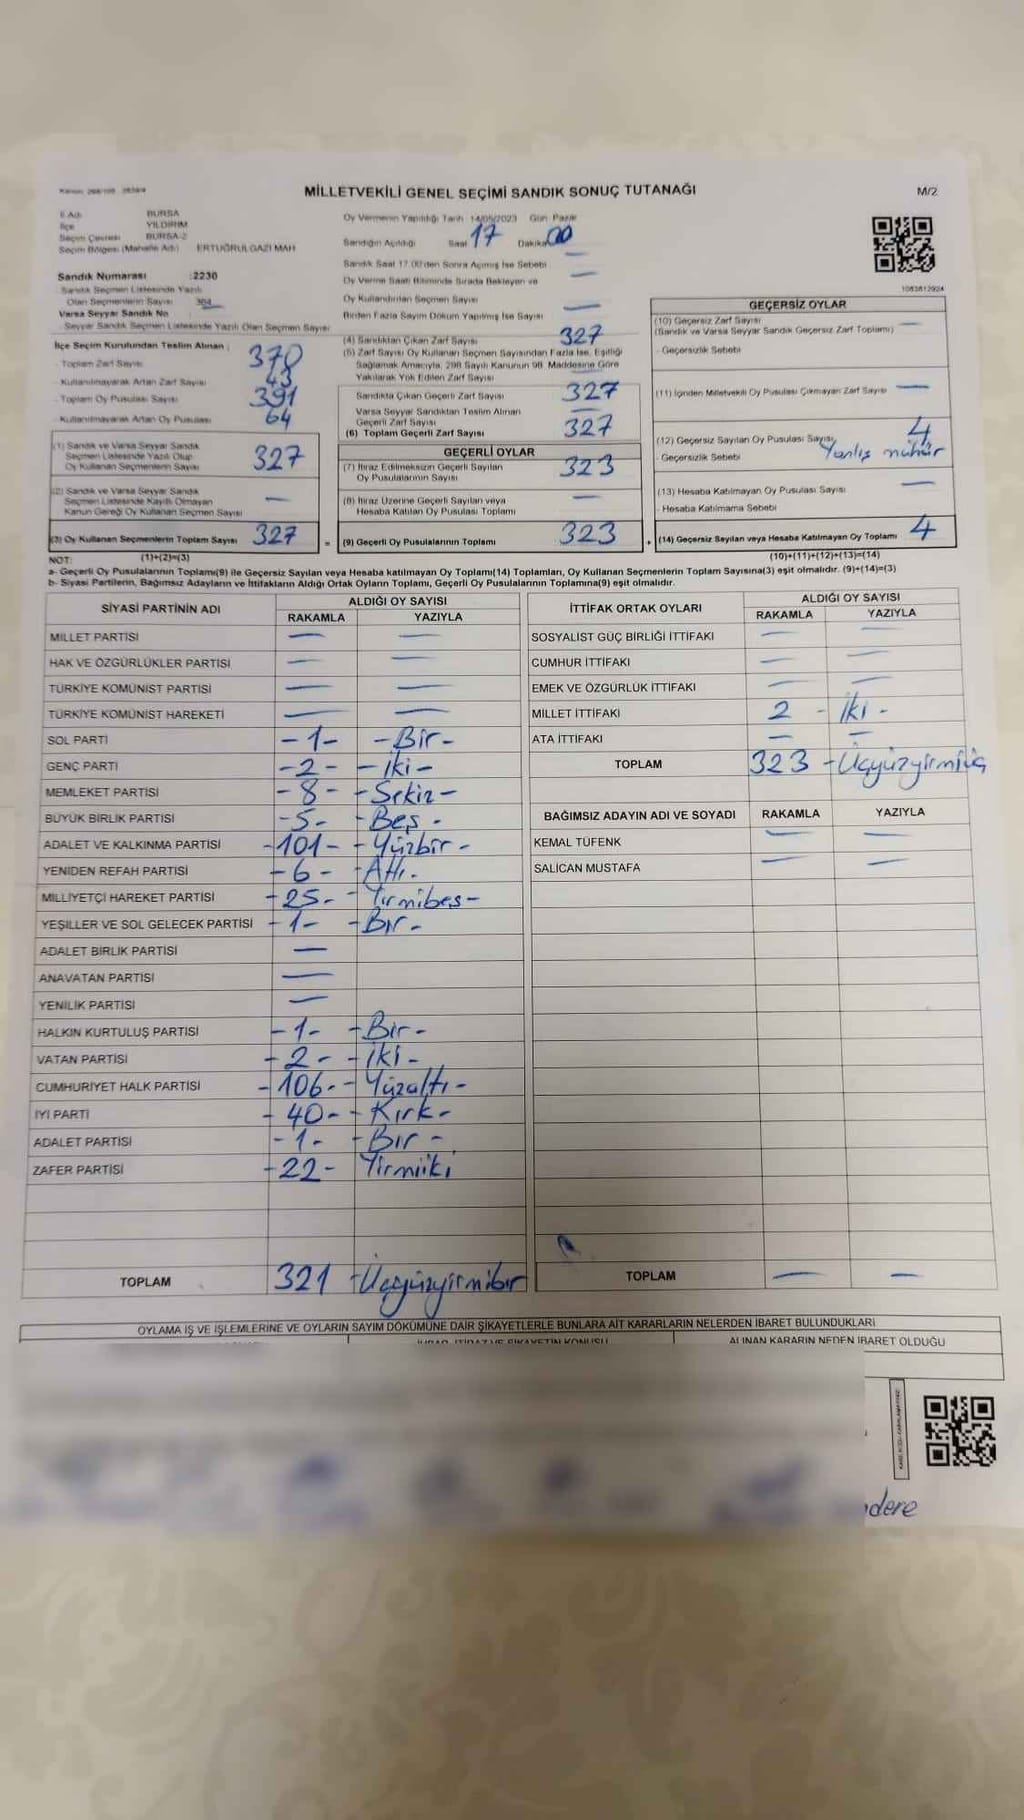 MİLLETVEKİLİ GENEL SEÇİMİ SANDIK SONUÇ TUTANAĞI
M/2
İl Adı BURSA
İlçe YILDIRIM
Seçim Çevresi BURSA-2
Seçim Bölgesi (Mahalle Adı) ERTUĞRULGAZİ MAH
Sandık Numarası :2230
Sandık Seçmen Listesinde Yazılı
Olan Seçmenlerin Sayısı
Varsa Seyyar Sandık No
Seyyar Sandık Seçmen Listesinde Yazılı Olan Seçmen Sayısı
İlçe Seçim Kurulundan Teslim Alınan ;
- Toplam Zarf Sayısı 370
- Kullanılmayarak Artan Zarf Sayısı 43
- Toplam Oy Pusulası Sayısı 391
- Kullanılmayarak Artan Oy Pusulası 64
(1) Sandık ve Varsa Seyyar Sandık
Seçmen Listesinde Yazılı Olup
Oy Kullanan Seçmenlerin Sayısı 327
(2) Sandık ve Varsa Seyyar Sandık
Seçmen Listesinde Kayıtlı Olmayan
Kanun Gereği Oy Kullanan Seçmen Sayısı —
(3) Oy Kullanan Seçmenlerin Toplam Sayısı 327
(1)+(2)=(3)
Oy Vermenin Yapıldığı Tarih 14/05/2023 Gün Pazar
Sandığın Açıldığı Saat 17 Dakika 00
Sandık Saat 17.00'den Sonra Açılmış İse Sebebi —
Oy Verme Saati Bitiminde Sırada Bekleyen ve
Oy Kullandırılan Seçmen Sayısı —
Birden Fazla Sayım Döküm Yapılmış İse Sayısı —
(4) Sandıktan Çıkan Zarf Sayısı 327
(5) Zarf Sayısı Oy Kullanan Seçmen Sayısından Fazla İse, Eşitliği
Sağlamak Amacıyla, 298 Sayılı Kanunun 98. Maddesine Göre
Yakılarak Yok Edilen Zarf Sayısı —
Sandıkta Çıkan Geçerli Zarf Sayısı 327
Varsa Seyyar Sandıktan Teslim Alınan
Geçerli Zarf Sayısı —
(6) Toplam Geçerli Zarf Sayısı 327
GEÇERLİ OYLAR
(7) İtiraz Edilmeksizin Geçerli Sayılan
Oy Pusulalarının Sayısı 323
(8) İtiraz Üzerine Geçerli Sayılan veya
Hesaba Katılan Oy Pusulası Toplamı —
= (9) Geçerli Oy Pusulalarının Toplamı 323
1083812924
GEÇERSİZ OYLAR
(10) Geçersiz Zarf Sayısı —
(Sandık ve Varsa Seyyar Sandık Geçersiz Zarf Toplamı)
- Geçersizlik Sebebi
(11) İçinden Milletvekili Oy Pusulası Çıkmayan Zarf Sayısı —
(12) Geçersiz Sayılan Oy Pusulası Sayısı 4
- Geçersizlik Sebebi Yanlış mühür
(13) Hesaba Katılmayan Oy Pusulası Sayısı —
- Hesaba Katılmama Sebebi
+ (14) Geçersiz Sayılan veya Hesaba Katılmayan Oy Toplamı 4
(10)+(11)+(12)+(13)=(14)
NOT:
a- Geçerli Oy Pusulalarının Toplamı(9) ile Geçersiz Sayılan veya Hesaba katılmayan Oy Toplamı(14) Toplamları, Oy Kullanan Seçmenlerin Toplam Sayısına(3) eşit olmalıdır. (9)+(14)=(3)
b- Siyasi Partilerin, Bağımsız Adayların ve İttifakların Aldığı Ortak Oyların Toplamı, Geçerli Oy Pusulalarının Toplamına(9) eşit olmalıdır.
SİYASİ PARTİNİN ADI ALDIĞI OY SAYISI
RAKAMLA YAZIYLA
MİLLET PARTİSİ — —
HAK VE ÖZGÜRLÜKLER PARTİSİ — —
TÜRKİYE KOMÜNİST PARTİSİ — —
TÜRKİYE KOMÜNİST HAREKETİ — —
SOL PARTİ -1- -Bir-
GENÇ PARTİ -2- -İki-
MEMLEKET PARTİSİ -8- -Sekiz-
BÜYÜK BİRLİK PARTİSİ -5- -Beş.
ADALET VE KALKINMA PARTİSİ -101- -Yüzbir-
YENİDEN REFAH PARTİSİ -6- -Altı.
MİLLİYETÇİ HAREKET PARTİSİ -25- -Yirmibeş-
YEŞİLLER VE SOL GELECEK PARTİSİ -1- -Bir-
ADALET BİRLİK PARTİSİ —
ANAVATAN PARTİSİ —
YENİLİK PARTİSİ —
HALKIN KURTULUŞ PARTİSİ -1- -Bir-
VATAN PARTİSİ -2- -İki-
CUMHURİYET HALK PARTİSİ -106- -Yüzaltı-
İYİ PARTİ -40- -Kırk-
ADALET PARTİSİ -1- -Bir-
ZAFER PARTİSİ -22- Yirmiiki
TOPLAM 321 -Üçyüzyirmibir
İTTİFAK ORTAK OYLARI ALDIĞI OY SAYISI
RAKAMLA YAZIYLA
SOSYALİST GÜÇ BİRLİĞİ İTTİFAKI — —
CUMHUR İTTİFAKI — —
EMEK VE ÖZGÜRLÜK İTTİFAKI — —
MİLLET İTTİFAKI 2 - İki -
ATA İTTİFAKI — —
TOPLAM 323 -Üçyüzyirmiüç
BAĞIMSIZ ADAYIN ADI VE SOYADI RAKAMLA YAZIYLA
KEMAL TÜFENK — —
SALİCAN MUSTAFA — —
TOPLAM — —
OYLAMA İŞ VE İŞLEMLERİNE VE OYLARIN SAYIM DÖKÜMÜNE DAİR ŞİKAYETLERLE BUNLARA AİT KARARLARIN NELERDEN İBARET BULUNDUKLARI
İHBAR, İTİRAZ VE ŞİKAYETİN KONUSU ALINAN KARARIN NEDEN İBARET OLDUĞU
dere